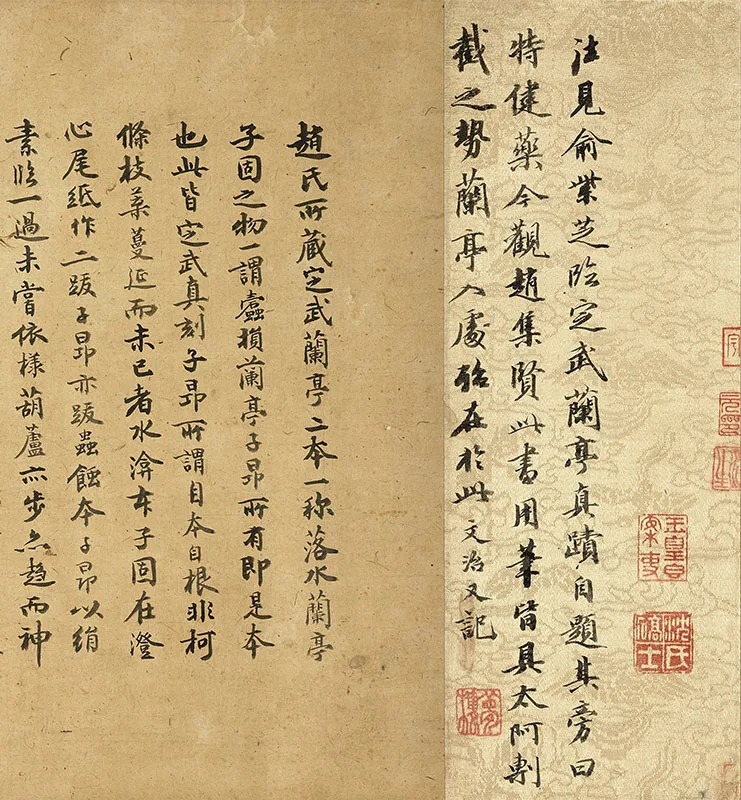 往見俞紫芝臨定武蘭亭真蹟自題其旁曰
特健藥今觀趙集賢此書用筆皆具太阿剸
截之勢蘭亭入處殆在於此文治又記
夢樓
玉皇香案吏
趙氏所藏定武蘭亭二本一称落水蘭亭
子固之物一謂蠹損蘭亭子昂所有即是本
也此皆定武真刻子昂所謂自本自根非柯
條枝葉蔓延而未已者水渰本子固在澄
心尾紙作二跋子昂亦跋蟲蝕本子昂以絹
素臨一過未嘗依樣葫蘆亦步亦趨而神